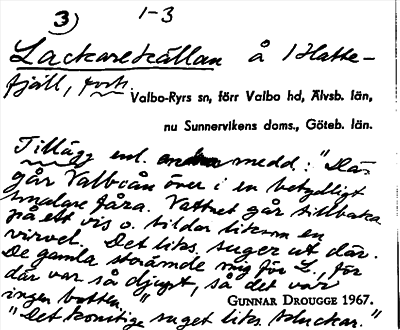 3) 1-3
Lackarekällan å Hatte-
fjäll, forts.
Valbo-Ryrs sn, förr Valbo hd, Älvsb. län,
nu Sunnervikens doms., Göteb. län.
Tillägg enl. medd: "Där
går Valboån över i en betydligt
smalare fåra. Vattnet går tillbaka
på ett vis o. bildar liksom en
virvel. Det liks. suger ut där.
De gamla storämde mig för L., för
där var så djupt, så det var
ingen botten."
GUNNAR DROUGGE 1967.
"Det konstige suget liks. kluckar."